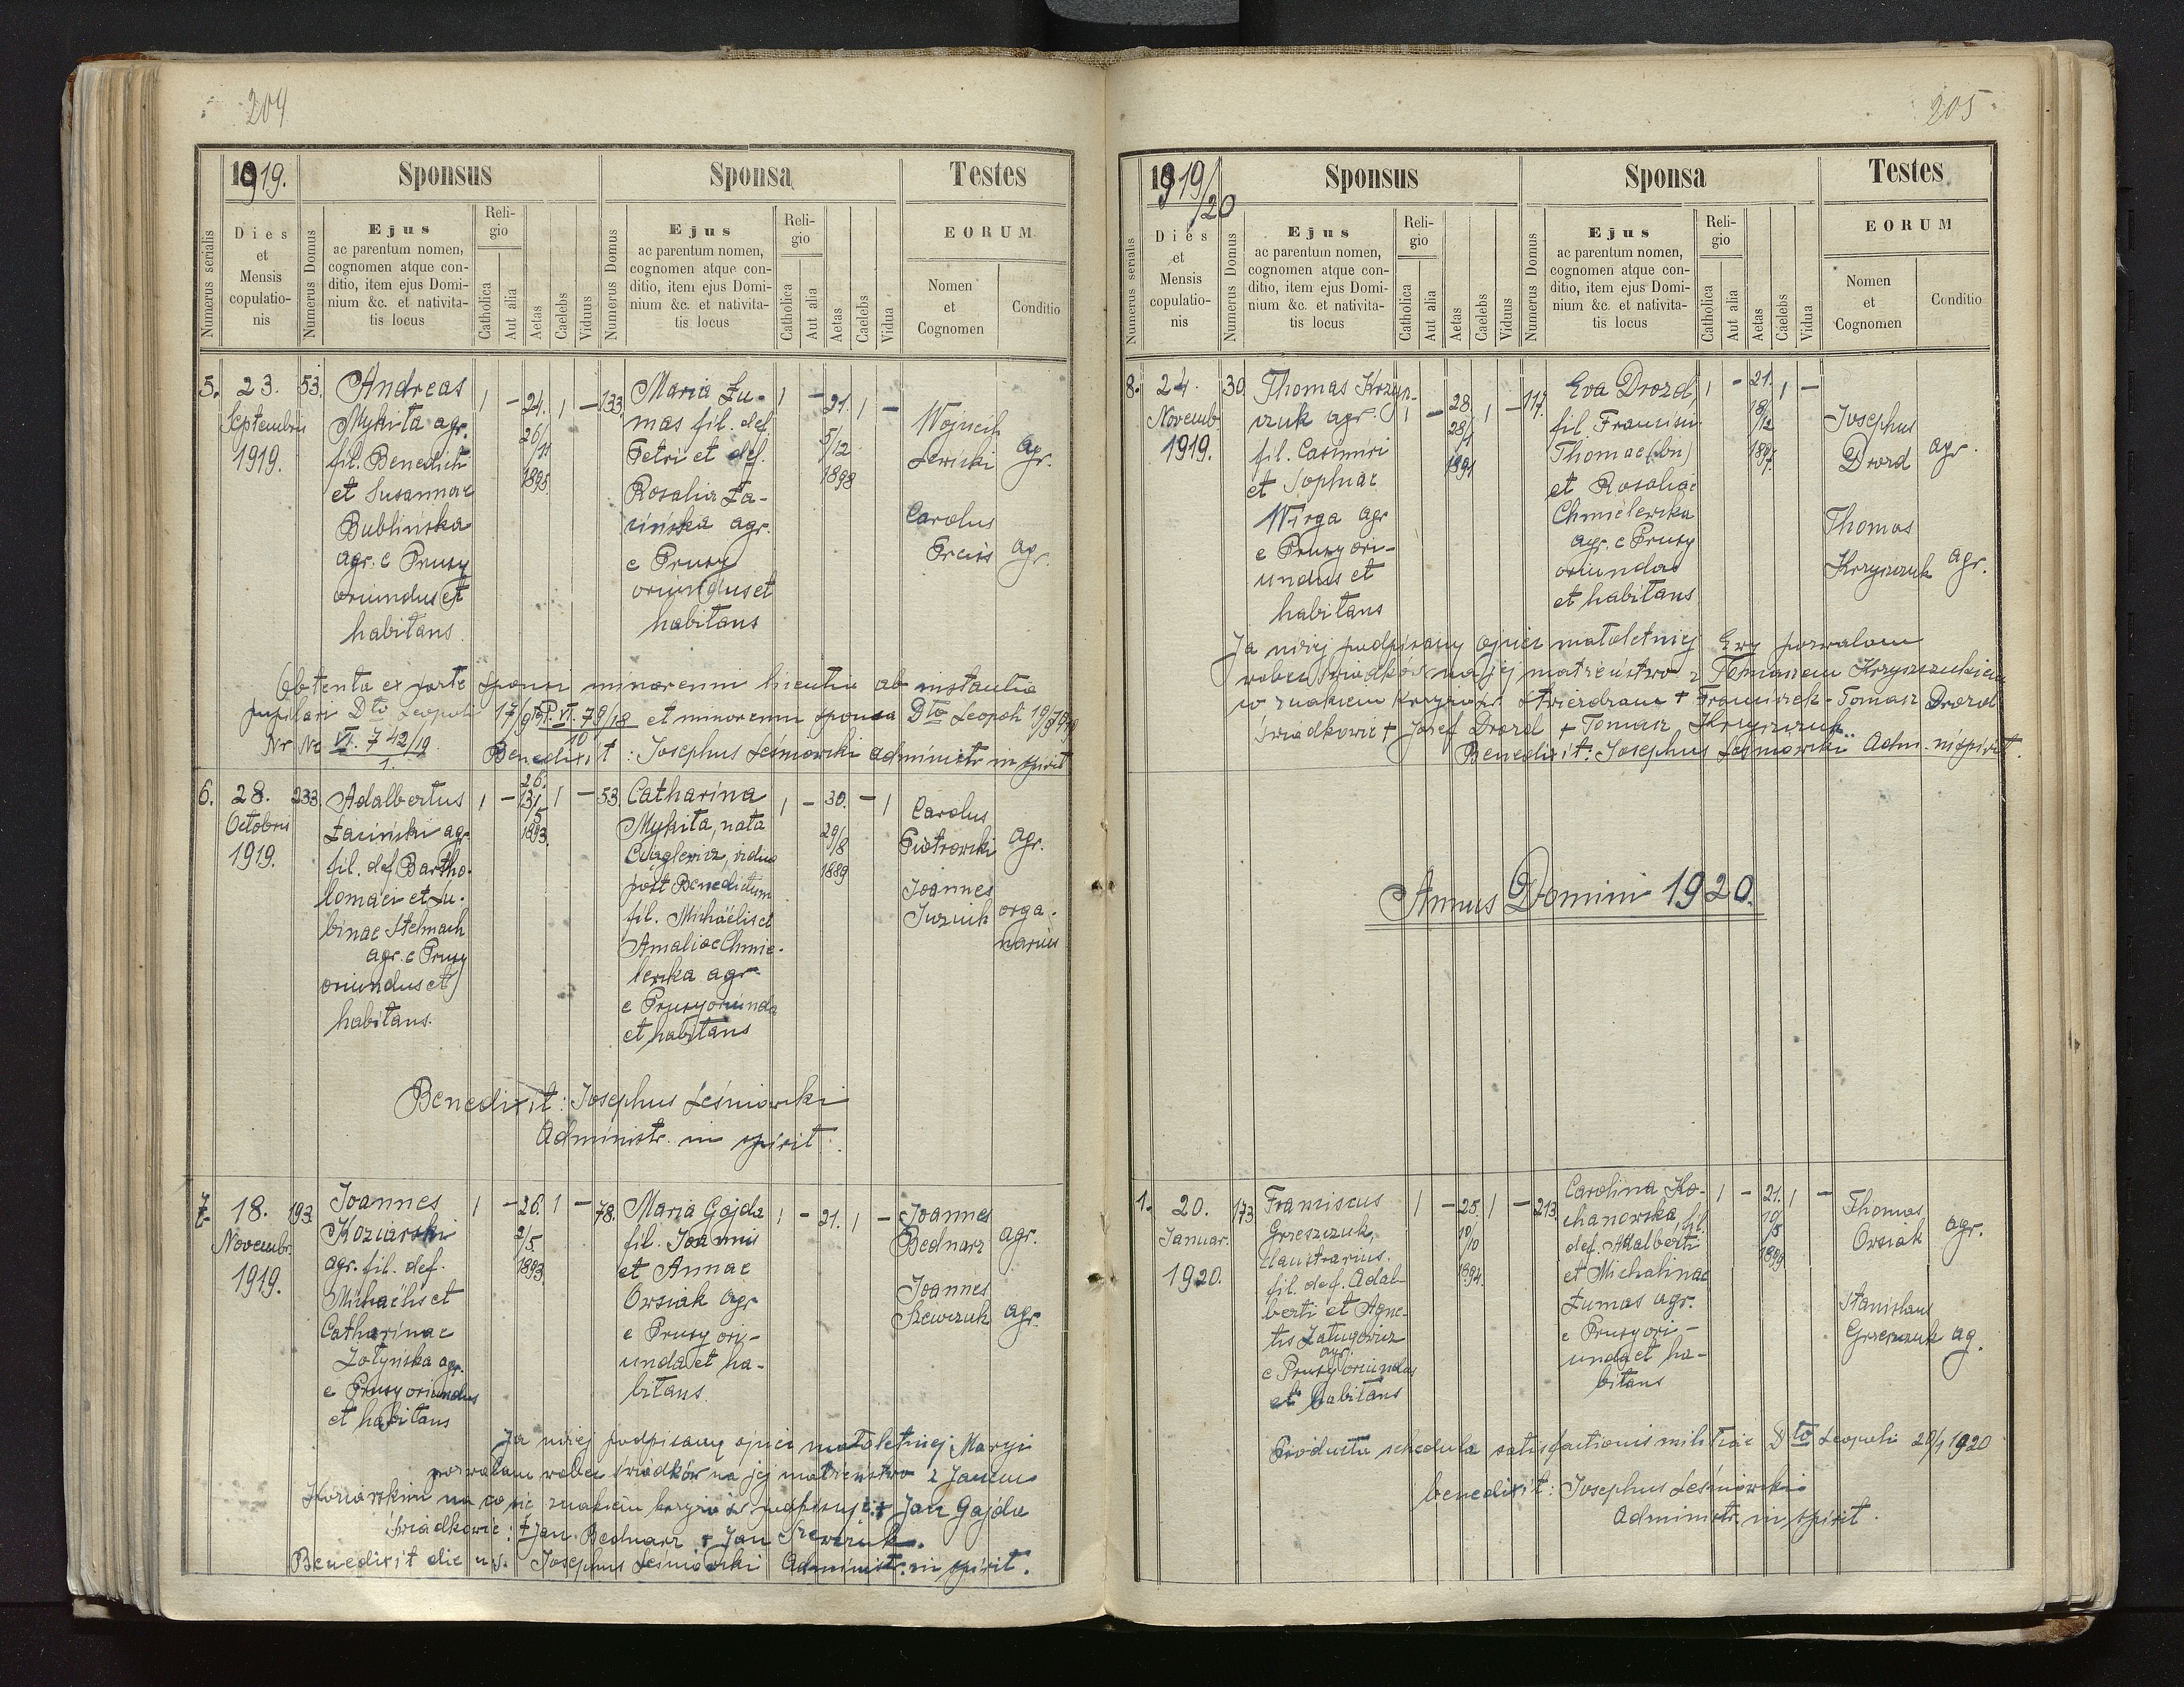 204
1919.
Sponsus
Sponsa
Testes
Numerus serialis
Dies
et
Mensis
copulatio-
nis
Numerus Domus
Ejus
ac parentum nomen,
cognomen atque con-
ditio, item ejus Domi-
nium &c. et nativita-
tis locus
Reli-
gio
Catholica
Aut alia
Aetas
Caelebs
Viduus
Numerus Domus
Ejus
ac parentum nomen,
cognomen atque con-
ditio, item ejus Domi-
nium &c. et nativita-
tis locus
Reli-
gio
Catholica
Aut alia
Aetas
Caelebs
Vidua
EORUM
Nomen
et
Cognomen
Conditio
5.
23.
Septembris
1919.
53.
Andreas
Mykita agr.
fil. Benedicti
et Susannae
Bublińska
agr. e Prusy
oriundus et
habitans.
1 - 24. 1 -
26/11
1895.
133.
Maria Łu-
mas fil. def.
Petri et def.
Rosalia Ła-
cińska agr.
e Prusy
oriundus et
habitans
1 - 21. 1 -
5/12
1898
Wojciech
Lewicki agr.
Carolus
agr.
Obtenta ex parte sponsi minorenni licentia ab instantia
pupilari Dto Leopoli 17/9 P. VI. 79/18 et minorenni sponsa Dto Leopoli 19/9 1919
10
Nr Nc VI. 742/19
1.
Benedixit: Josephus Leśniowski Administr. in spirit.
6.
28.
Octobris
1919.
233.
Adalbertus
Łaciński agr.
fil. def. Bartho-
lomaei et Lu-
binae Stelmach
agr. e Prusy
oriundus et
habitans.
1 - 26. 1 -
13/5
1893.
53.
Catharina
Mykita, nata
vidua
post Benedictum
fil. Michaelis et
Amaliae Chmie-
lewska agr.
e Prusy oriunda
et habitans
1 - 30. - 1
29/8
1889
Carolus
Piotrowski agr.
Joannes
Juzwik orga-
narius
Benedixit: Josephus Leśniowski
Administr. in spirit.
7.
18.
Novembr.
1919.
193.
Joannes
Koziarski
agr. fil. def.
Michaelis et
Catharinae
Żołyńska agr.
e Prusy oriundus
et habitans
1 - 26. 1 -
2/5
1893.
78.
Maria Gajda
fil. Joannis
et Annae
Orsiak agr.
e Prusy ori-
unda et ha-
bitans.
1 - 21. 1 -
Joannes
Bednarz agr.
Joannes
Szewczuk agr.
Ja niżej podpisany ojciec małoletniej Maryi
pozwalam wobec świadków na jej małżeństwo z Janem
Koziarskim na co się znakiem krzyża św. podpisuję: + Jan Gajda
Świadkowie: + Jan Bednarz + Jan Szewczuk.
Benedixit die u.s. Josephus Leśniowski Administr. in spirit.
205
1919/20
Sponsus
Sponsa
Testes
Numerus serialis
Dies
et
Mensis
copulatio-
nis
Numerus Domus
Ejus
ac parentum nomen,
cognomen atque con-
ditio, item ejus Domi-
nium &c. et nativita-
tis locus
Reli-
gio
Catholica
Aut alia
Aetas
Caelebs
Viduus
Numerus Domus
Ejus
ac parentum nomen,
cognomen atque con-
ditio, item ejus Domi-
nium &c. et nativita-
tis locus
Reli-
gio
Catholica
Aut alia
Aetas
Caelebs
Vidua
EORUM
Nomen
et
Cognomen
Conditio
8.
24.
Novemb.
1919.
30.
Thomas Krzysz-
czuk agr.
fil. Casimiri
et Sophiae
Wirga agr.
e Prusy ori-
undus et
habitans
1 - 28. 1 -
28/1
1891
117.
Eva Drozd
fil. Francisci
Thomae (bin)
et Rosaliae
Chmielewska
agr. e Prusy
oriundas
et habitans
1 - 21. 1 -
18/12
1897.
Josephus
Drozd agr.
Thomas
Krzyszczuk agr.
Ja niżej podpisany ojciec małoletniej Ewy pozwalam
wobec świadków na jej małżeństwo z Tomaszem Krzyszczukiem
co znakiem krzyża św. stwierdzam + Franciszek-Tomasz Drozd
Świadkowie + Józef Drozd + Tomasz Krzyszczuk.
Benedixit: Josephus Leśniowski Adm. in spirit.
Annus Domini 1920.
1.
20.
Januar.
1920.
173.
Franciscus
Greszczuk,
claustrarius.
fil. def. Adal-
berti et Agne-
tis Załugowicz
agr.
e Prusy oriundus
et habitans
1 - 25. 1 -
10/10
1894.
213.
Carolina Ko-
chanowska fil.
def. Adalberti
et Michalinae
Łumas agr.
e Prusy ori-
unda et ha-
bitans
1 - 21. 1 -
10/5
1899
Thomas
Orsiak agr.
Stanislaus
Greszczuk ag.
Producta schedula satisfactionis militiae Dto Leopoli 20/1 1920
benedixit: Josephus Leśniowski
Administr. in spirit.